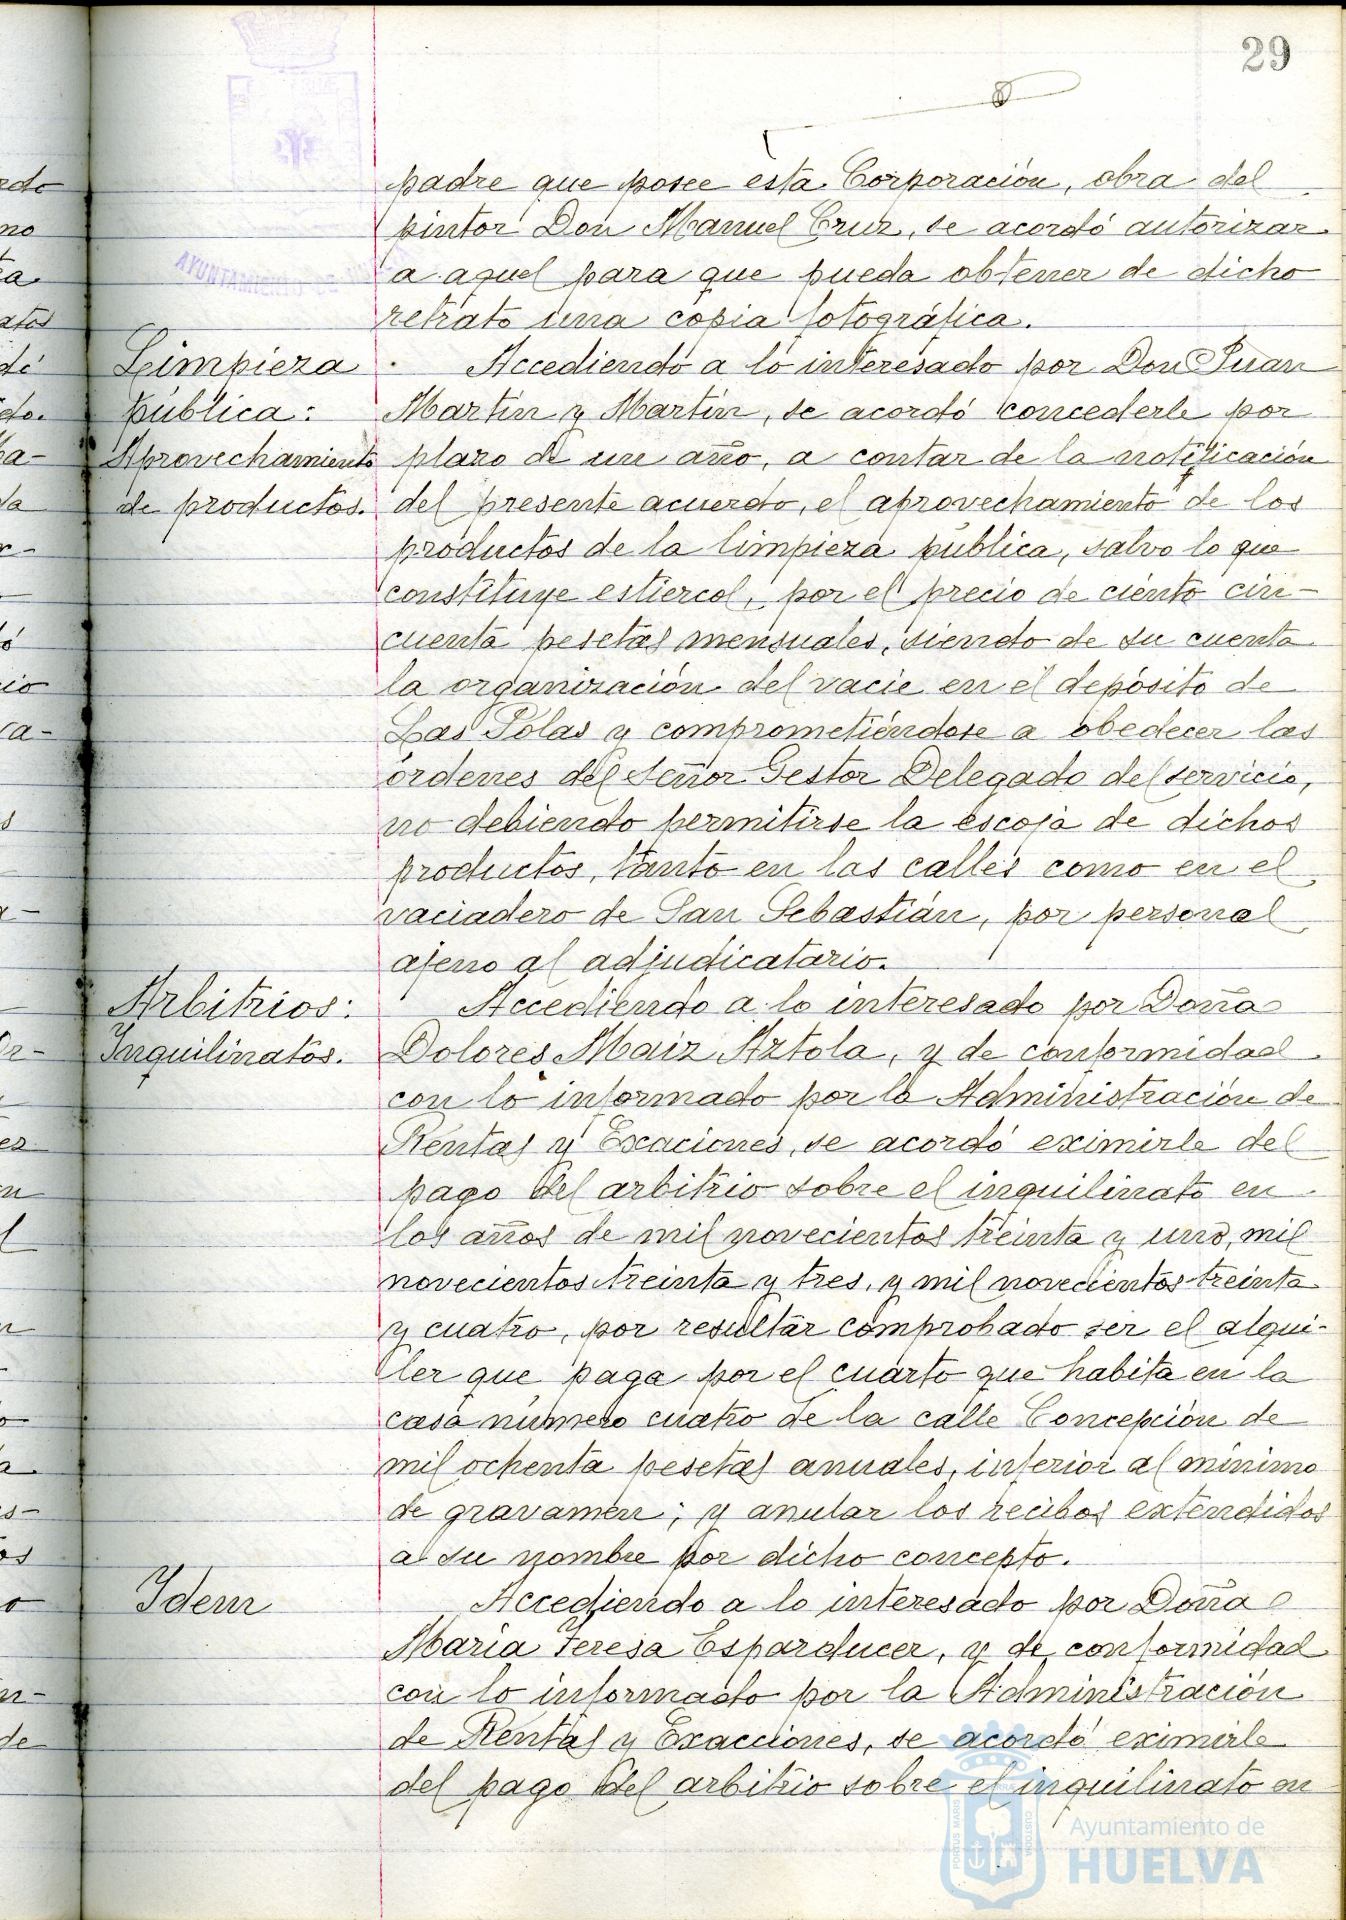 29
padre que posee esta Corporación, obra del
pintor Don Manuel Cruz, se acordó autorizar
a aquel para que pueda obtener de dicho
retrato una copia fotográfica.
Limpieza
pública:
Aprovechamiento
de productos.
Accediendo a lo interesado por Don Juan
Martín y Martín, se acordó concederle por
plazo de un año, a contar de la notificación
del presente acuerdo, el aprovechamiento de los
productos de la limpieza pública, salvo lo que
constituye estiercol, por el precio de ciento cin-
cuenta pesetas mensuales, siendo de su cuenta
la organización del vacie en el depósito de
Las Polas y comprometiéndose a obedecer las
órdenes del Señor Gestor Delegado del servicio,
no debiendo permitirse la escoja de dichos
productos, tanto en las calles como en el
vaciadero de San Sebastián, por personal
ajeno al adjudicatario.
Arbitrios:
Inquilinatos.
Accediendo a lo interesado por Doña
Dolores Maiz Aztola, y de conformidad
con lo informado por la Administración de
Rentas y Exaciones, se acordó eximirle del
pago del arbitrio sobre el inquilinato en
los años de mil novecientos treinta y uno, mil
novecientos treinta y tres, y mil novecientos treinta
y cuatro, por resultar comprobado ser el alqui-
ler que paga por el cuarto que habita en la
casa número cuatro de la calle Concepción de
mil ochenta pesetas anuales, inferior al mínimo
de gravamen; y anular los recibos extendidos
a su nombre por dicho concepto.
Idem
Accediendo a lo interesado por Doña
María Teresa Esparducer, y de conformidad
con lo informado por la Administración
de Rentas y Exacciones, se acordó eximirle
del pago del arbitrio sobre el inquilinato en
AYUNTAMIENTO DE
PORTUS MARIS
CUSTODIA
Ayuntamiento de
HUELVA